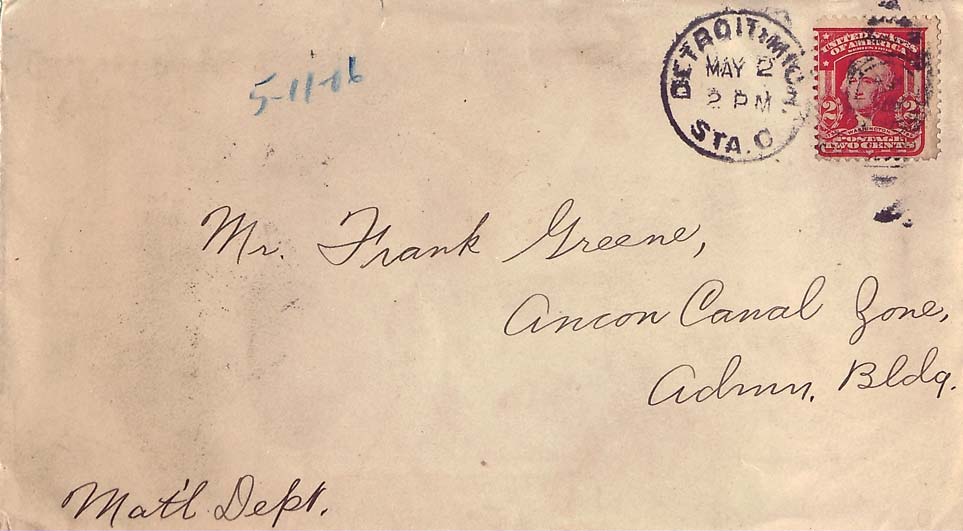 5-11-06
DETROIT, MICH.
MAY 2
2 PM
STA. C
UNITED STATES
OF AMERICA
2 2
WASHINGTON
POSTAGE
TWO CENTS
Mr. Frank Greene,
Ancon Canal Zone,
Admn. Bldg.
Mat'l Dept.